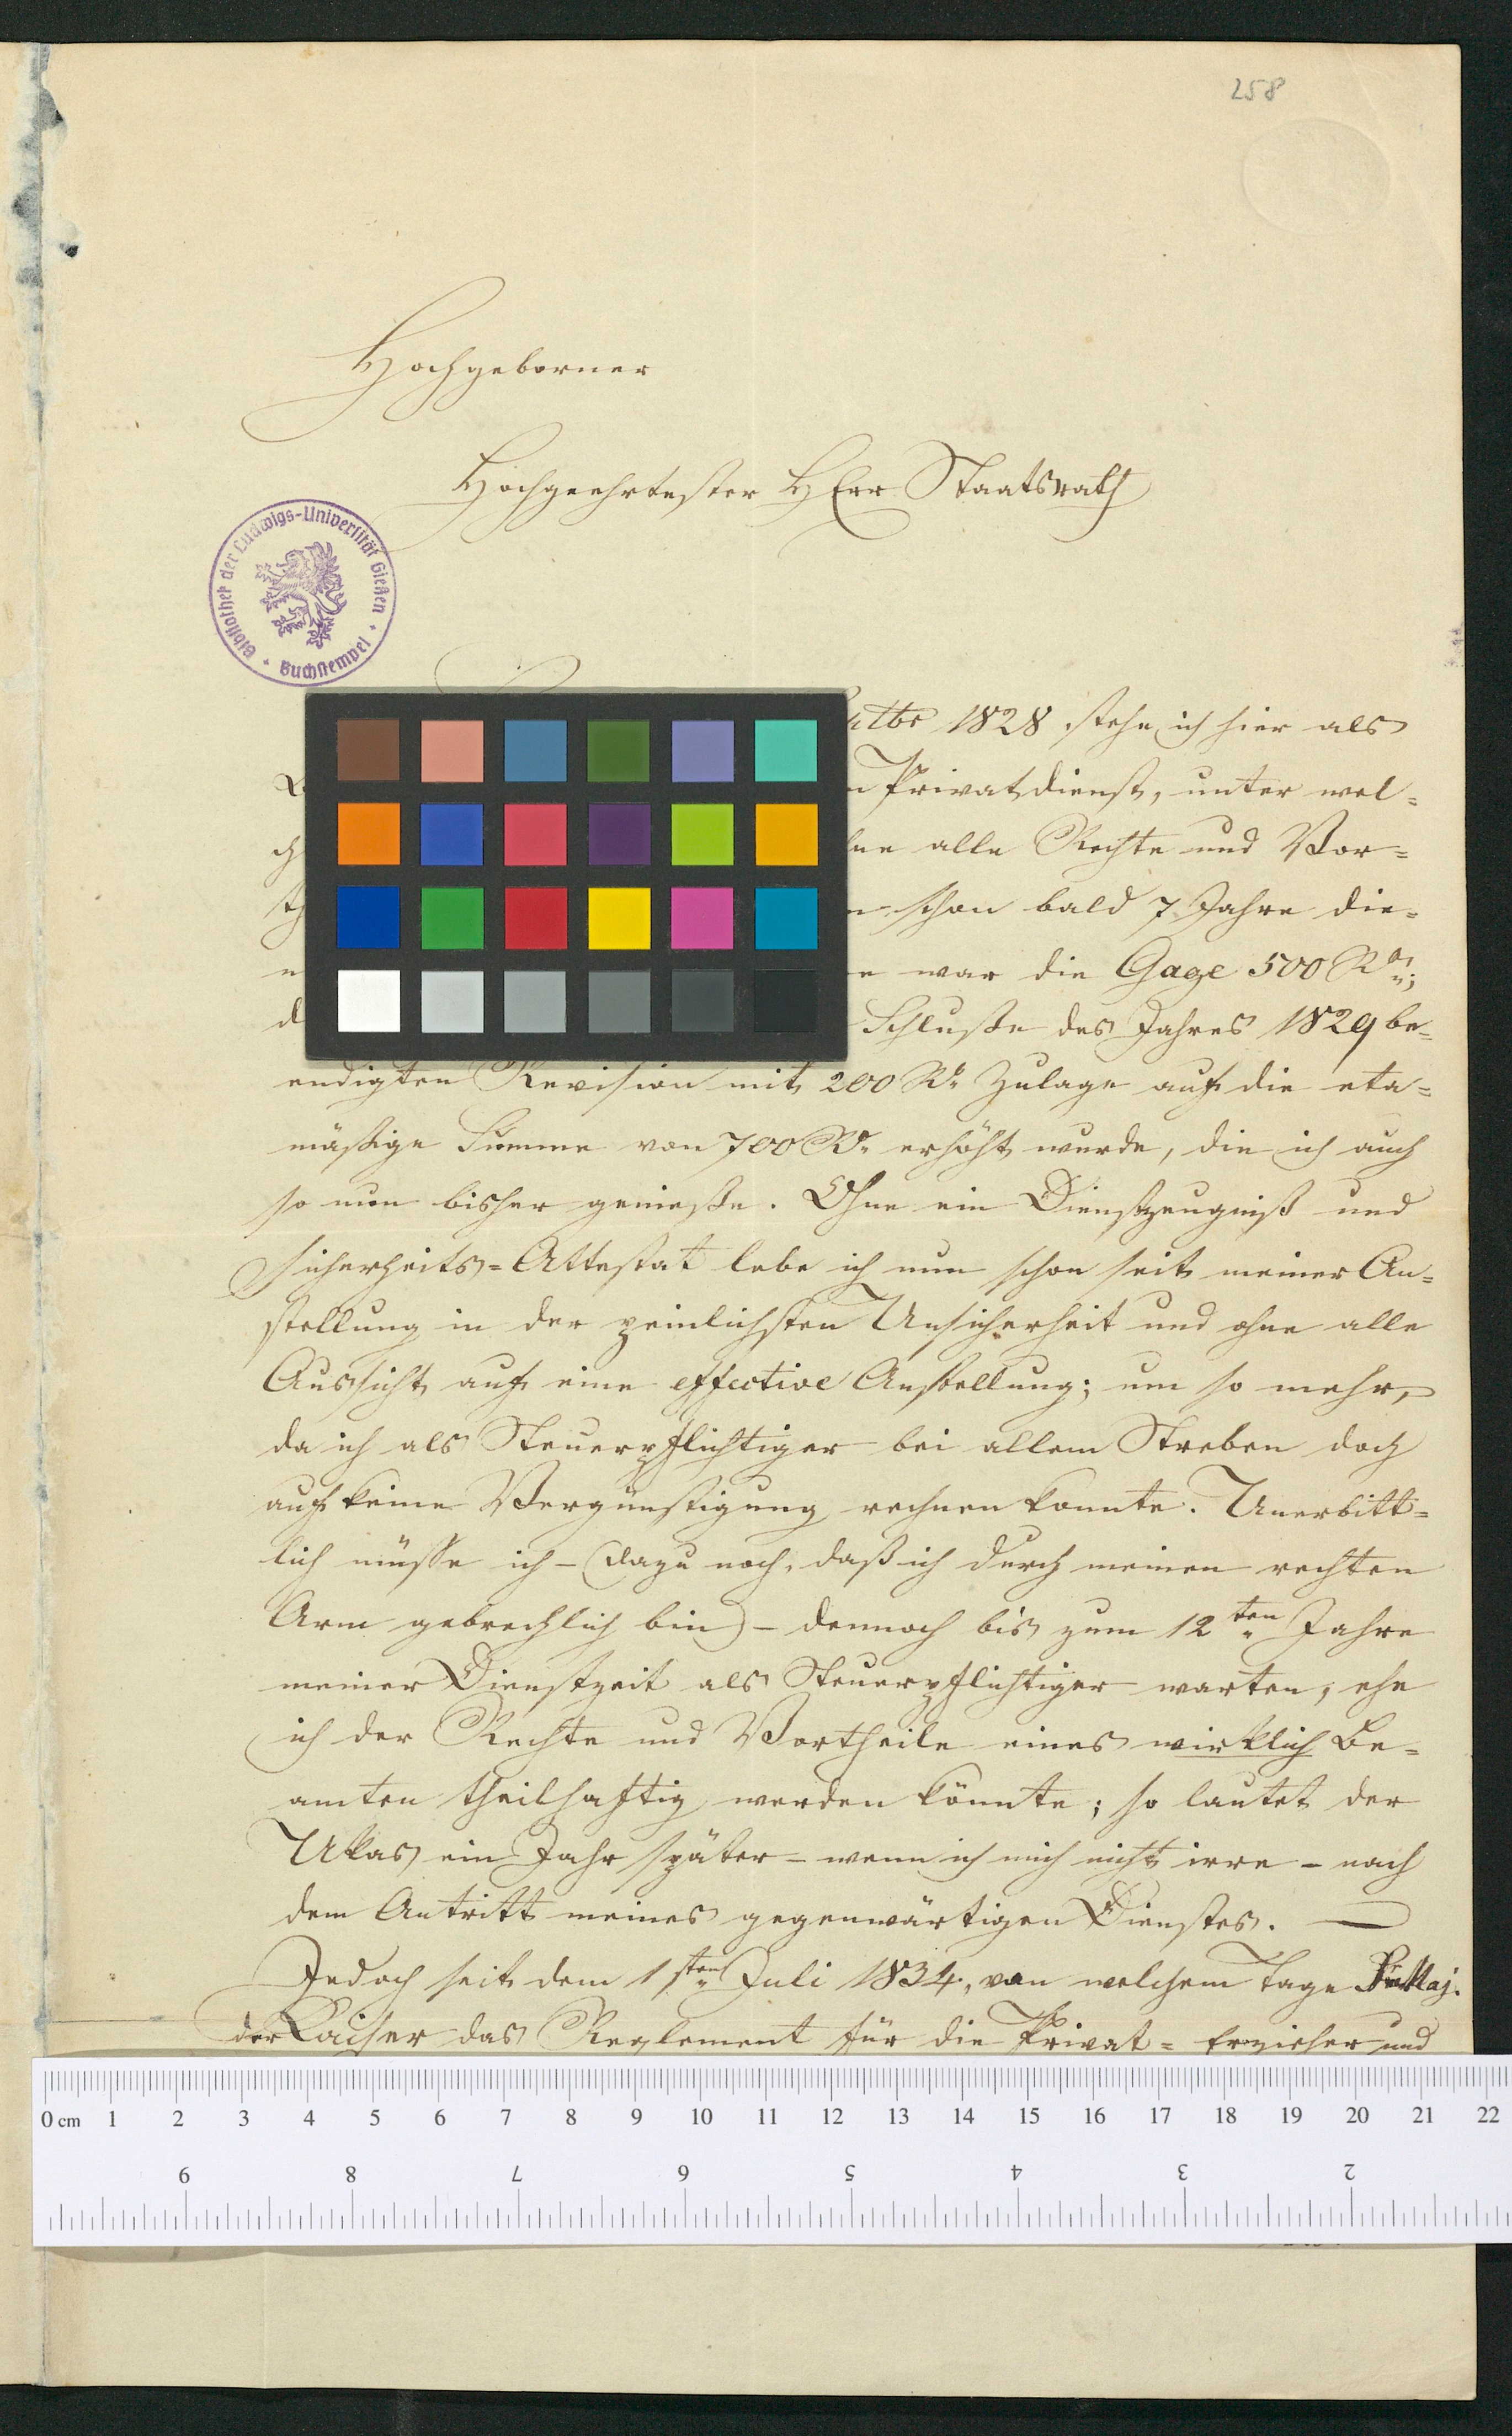 258
Hochgeborner
Hochgeehrtester HErr Staatsrath
Bibliothek der Ludwigs-Universität Gießen
Buchstempel
1828 stehe ich hier als
Privatdienst, unter wel=
ch
alle Rechte und Vor=
th
schon bald 7 Jahre die=
n
war die Gage 500 R
d
Schluße des Jahres 1829 be=
endigten Revision mit 200 R. Zulage auf die eta=
mäßige Summe von 700 R. erhöht wurde, die ich auch
so nun bisher genieße. Ohne ein Dienstzeugniß und
Sicherheits=Attestat lebe ich nun schon seit meiner An=
stellung in der peinlichsten Unsicherheit und ohne alle
Aussicht auf eine effective Anstellung; um so mehr,
da ich als Steuerpflichtiger bei allem Streben doch
auf keine Vergünstigung rechnen konnte. Unerbitt=
lich müsse ich – (dazu noch, daß ich durch meinen rechten
Arm gebrechlich bin) – dennoch bis zum 12ten Jahre
meiner Dienstzeit als Steuerpflichtiger warten, ehe
ich der Rechte und Vortheile eines wirklich Be=
amten theilhaftig werden könnte; so lautet der
Ukas ein Jahr später – wenn ich mich nicht irre – nach
dem Antritt meines gegenwärtigen Dienstes. —
Jedoch seit dem 1sten Juli 1834, von welchem Tage Maj.
der Kaiser das Reglement für die Privat= Erzieher und
0 cm 1 2 3 4 5 6 7 8 9 10 11 12 13 14 15 16 17 18 19 20 21 22
9 8 7 6 5 4 3 2